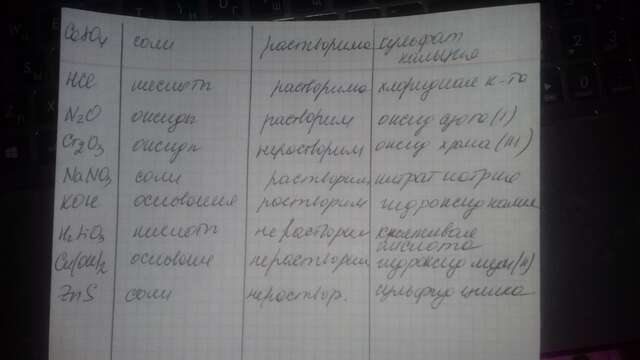 CaSO4 соли растворима сульфат
кальция
HCl кислоты растворима хлоридная к-та
N2O оксиды растворим оксид азота (I)
Cr2O3 оксиды нерастворим оксид хрома (III)
NaNO3 соли растворим нитрат натрия
KOH основания растворим гидроксид калия
H2SiO3 кислоты нерастворим кремниевая
кислота
Cu(OH)2 основание нерастворим гидроксид меди (II)
ZnS соли нераствор. сульфид цинка